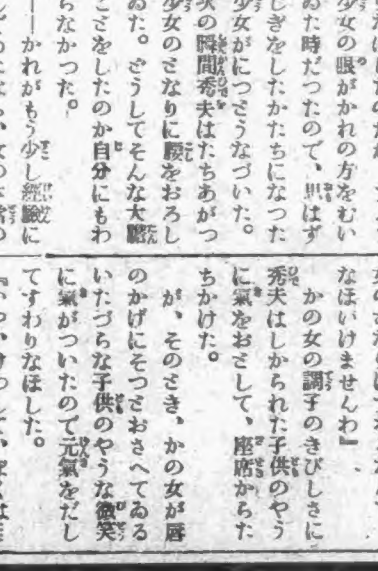 少女の眼がかれの方をむい
ゐた時だつたので、思はず
しぎをしたかたちになつた
少女がにつとうなづいた。
次の瞬間秀夫はたちあがつ
少女のとなりに腰をおろし
ゐた。どうしてそんな大膽
ことをしたのか自分にもわ
らなかつた。
――かれがもう少し經驗に
なほいけませんわ』
かの女の調子のきびしさに
秀夫はしかられた子供のやう
に氣をおとして、座席からた
ちかけた。
が、そのとき、かの女が唇
のかげにそつとおさへてゐる
いたづらな子供のやうな微笑
に氣がついたので元氣をだし
てすわりなほした。